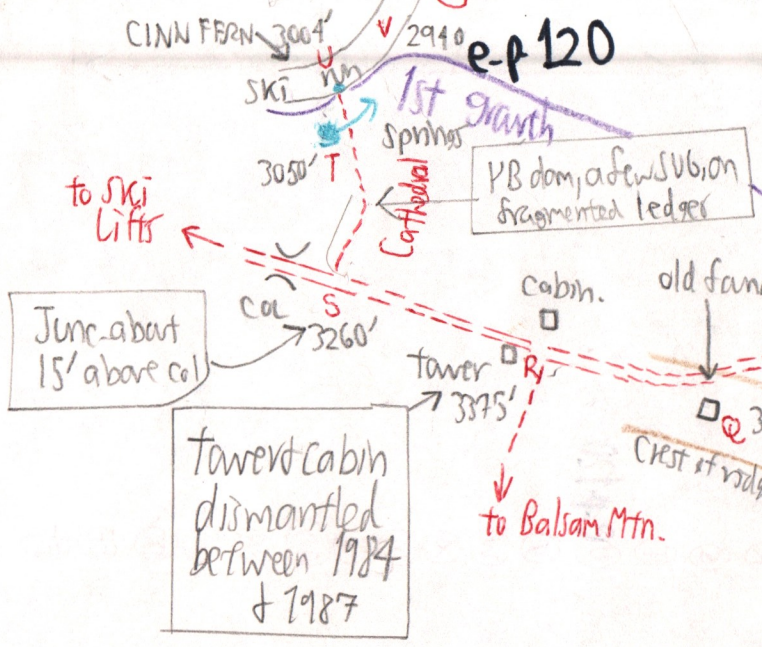 CINN FERN 3004'
U
V
2940
e-p 120
SKi
1st growth
springs
3050'
T
Cathedral
YB dom, a few SUG, on
fragmented ledger
to Ski
Lifts
col
S
3260'
Junc. about
15' above col
cabin.
tower
R
3375'
Q 3
Crest of
tower & cabin
dismantled
between 1984
& 1987
to Balsam Mtn.
old